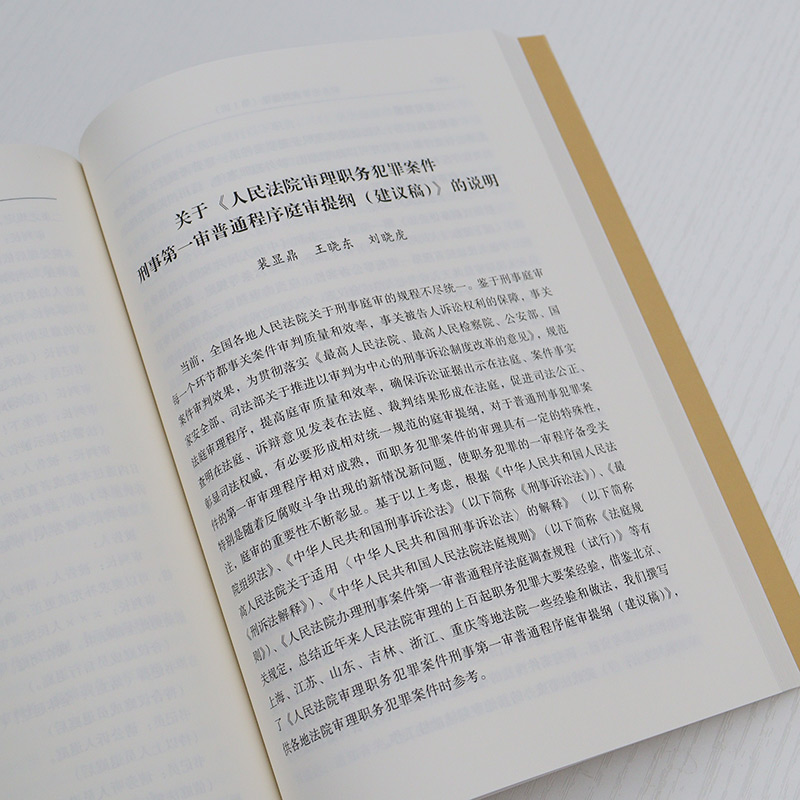 关于《人民法院审理职务犯罪案件
刑事第一审普通程序庭审提纲（建议稿）》的说明
裴显鼎 王晓东 刘晓虎
当前，全国各地人民法院关于刑事庭审的规程不尽统一。鉴于刑事庭审
每一个环节都事关案件审判质量和效率，事关被告人诉讼权利的保障，事关
案件审判效果，为贯彻落实《最高人民法院、最高人民检察院、公安部、国
家安全部、司法部关于推进以审判为中心的刑事诉讼制度改革的意见》，规范
法庭审理程序，提高庭审质量和效率，确保诉讼证据出示在法庭、案件事实
查明在法庭、诉辩意见发表在法庭、裁判结果形成在法庭，促进司法公正、
彰显司法权威，有必要形成相对统一规范的庭审提纲，对于普通刑事犯罪案
件的第一审审理程序相对成熟，而职务犯罪案件的审理具有一定的特殊性，
特别是随着反腐败斗争出现的新情况新问题，使职务犯罪的一审程序备受关
注，庭审的重要性不断彰显。基于以上考虑，根据《中华人民共和国人民法
院组织法》、《中华人民共和国刑事诉讼法》（以下简称《刑事诉讼法》）、《最
高人民法院关于适用〈中华人民共和国刑事诉讼法〉的解释》（以下简称
《刑诉法解释》）、《中华人民共和国人民法院法庭规则》（以下简称《法庭规
则》）、《人民法院办理刑事案件第一审普通程序法庭调查规程（试行）》等有
关规定，总结近年来人民法院审理的上百起职务犯罪大要案经验，借鉴北京、
上海、江苏、山东、吉林、浙江、重庆等地法院一些经验和做法，我们撰写
了《人民法院审理职务犯罪案件刑事第一审普通程序庭审提纲（建议稿）》，
供各地法院审理职务犯罪案件时参考。